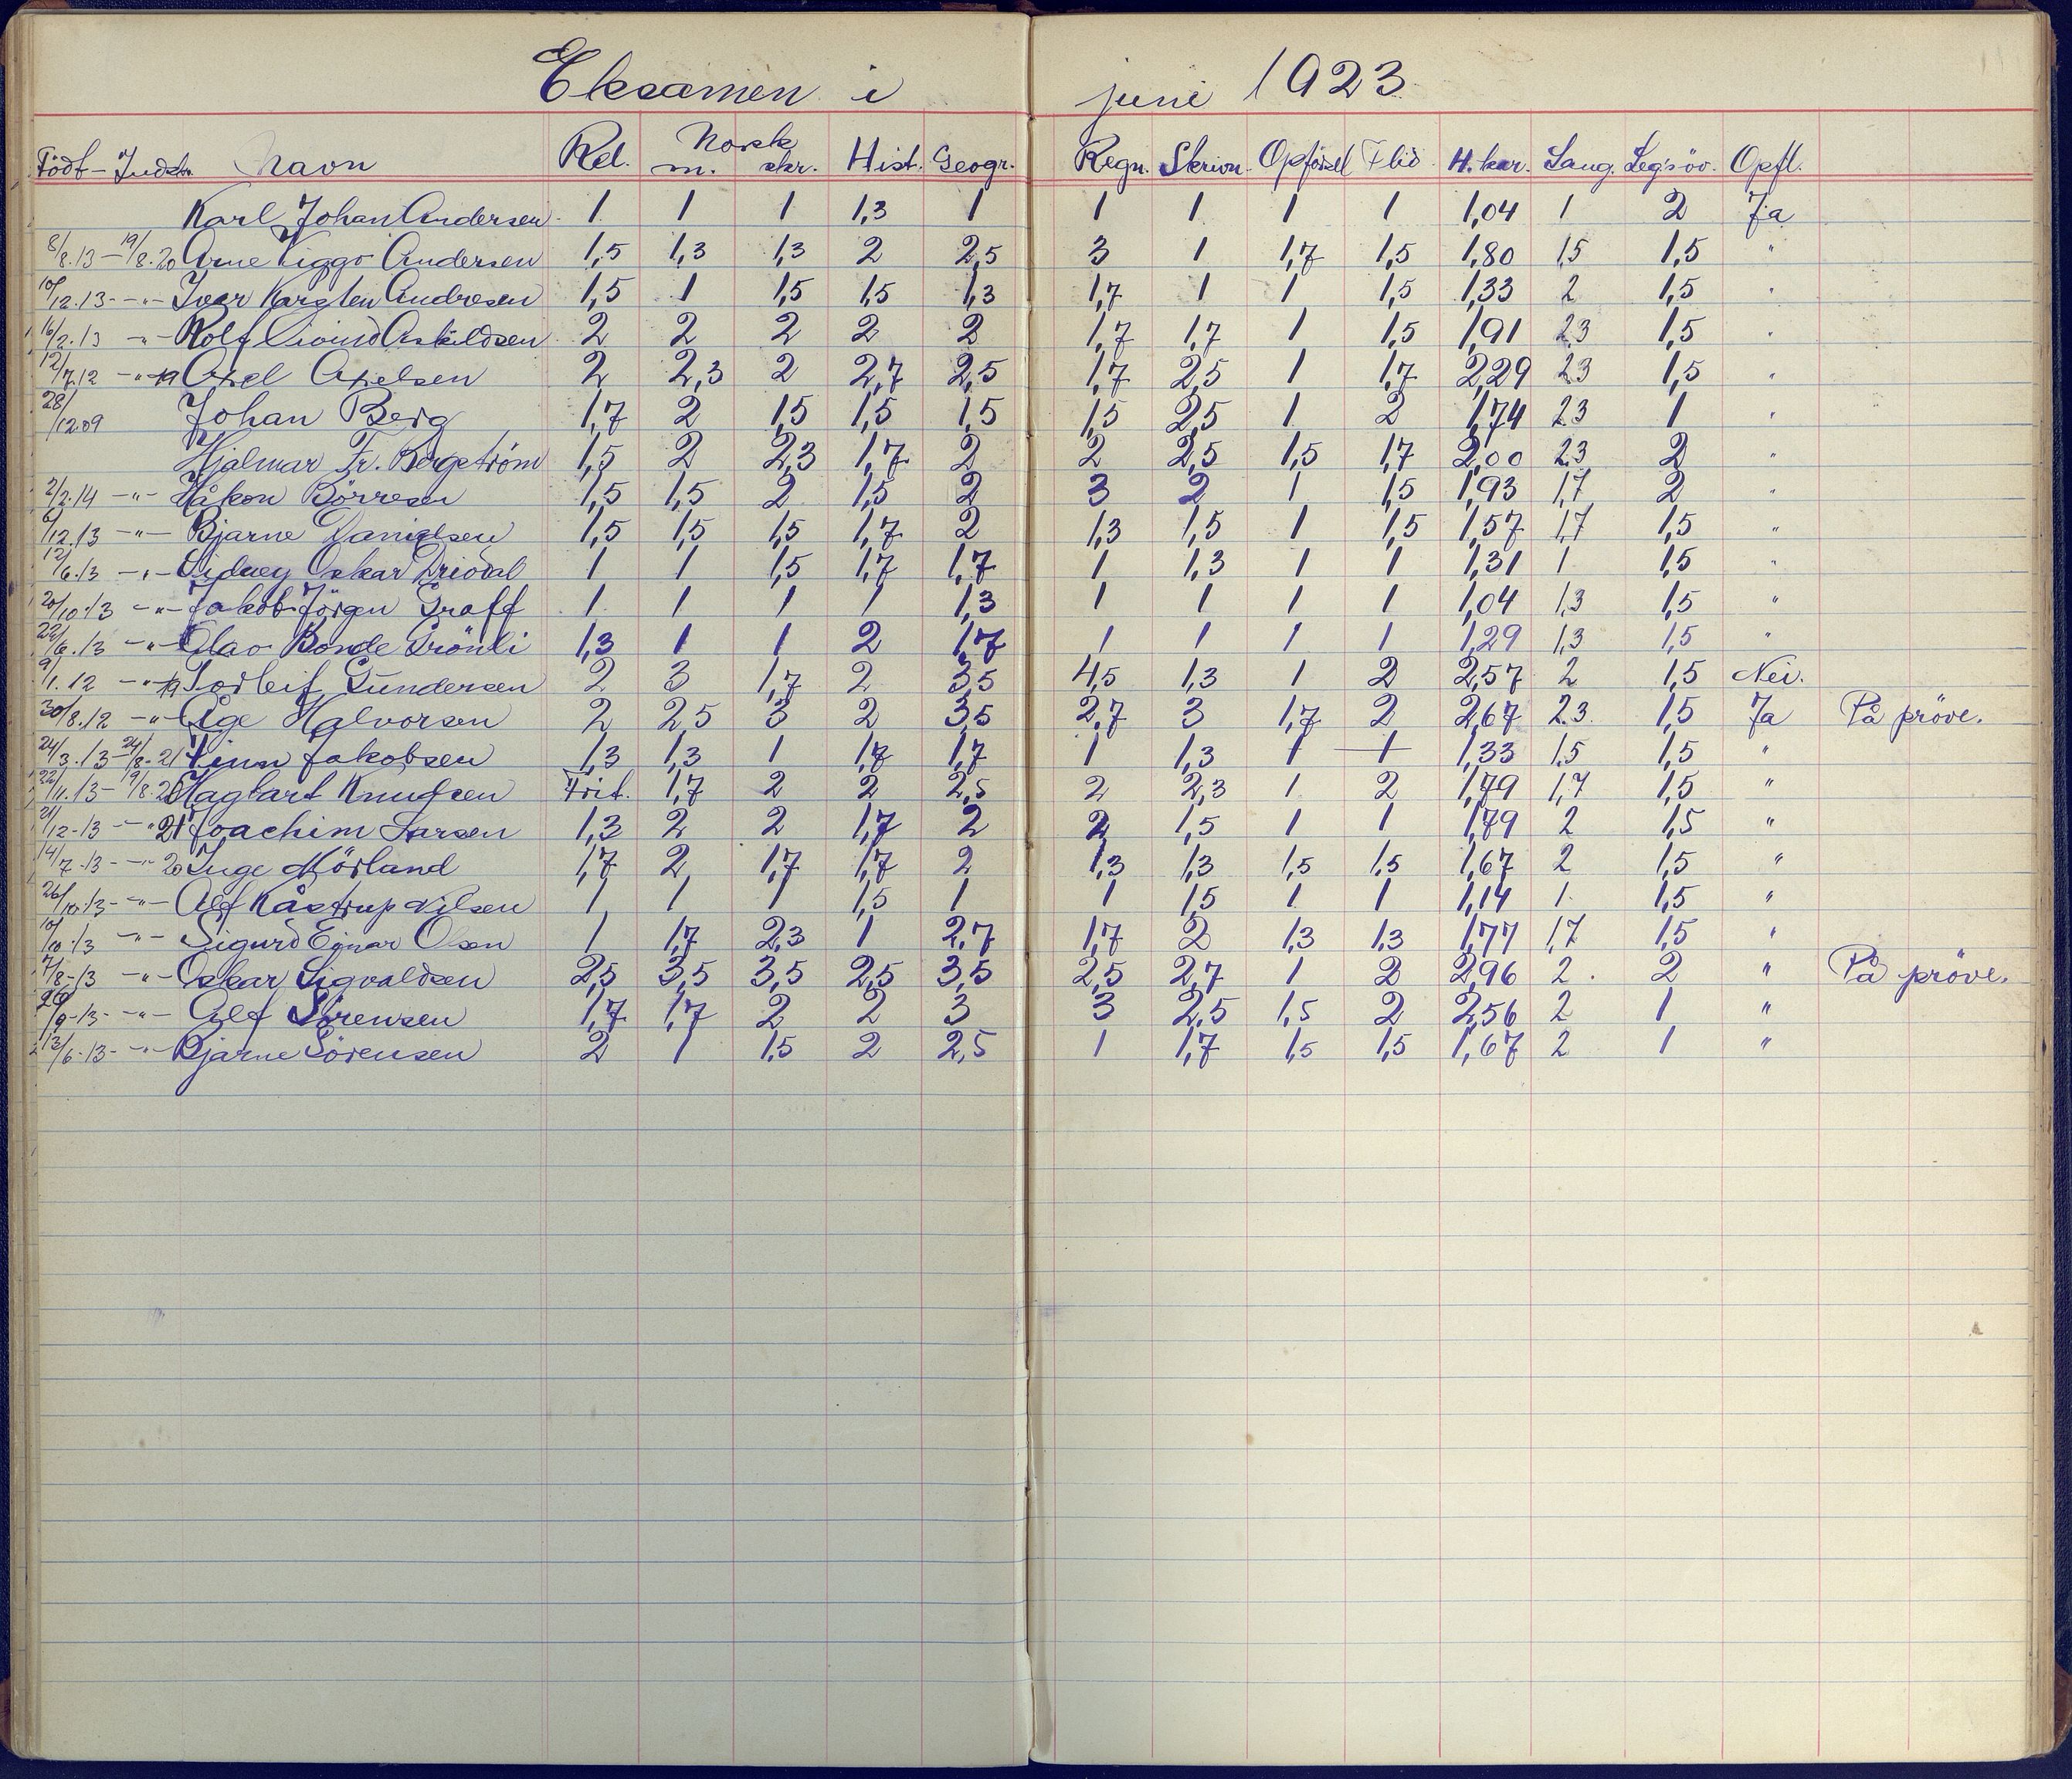 Eksamen i juni 1923
Födt - Indskr. Navn Rel. Norsk m. skr. Hist. Geogr. Regn. Skrivn. Opförsel Flid H.kar. Sang. Leg.söv. Opfl.
Karl Johan Andersen 1 1 1 1,3 1 1 1 1 1 1,04 1 2 Ja
8/8.13 - 19/8.20 Arne Viggo Andersen 1,5 1,3 1,3 2 2,5 3 1 1,7 1,5 1,80 1,5 1,5 "
10/12.13 - " - Ivar Karsten Andresen 1,5 1 1,5 1,5 1,3 1,7 1 1 1,5 1,33 2 1,5 "
16/2.13 - " - Rolf Eivind Askildsen 2 2 2 2 2 1,7 1,7 1 1,5 1,91 2,3 1,5 "
12/7.12 - " - 19 Axel Axelsen 2 2,3 2 2,7 2,5 1,7 2,5 1 1,7 2,29 2,3 1,5 "
28/12 09 Johan Berg 1,7 2 1,5 1,5 1,5 1,5 2,5 1 2 1,74 2,3 1 "
Hjalmar Fr. Bergström 1,5 2 2,3 1,7 2 2 2,5 1,5 1,7 2,00 2,3 2 "
2/2.14 - " - Håkon Börresen 1,5 1,5 2 1,5 2 3 2 1 1,5 1,93 1,7 2 "
6/12.13 - " - Bjarne Danielsen 1,5 1,5 1,5 1,7 2 1,3 1,5 1 1,5 1,57 1,7 1,5 "
12/6.13 - " - Sidney Oskar Driodal 1 1 1,5 1,7 1,7 1 1,3 1 1 1,31 1 1,5 "
20/10.13 - " - Jakob Jörgen Graff 1 1 1 1 1,3 1 1 1 1 1,04 1,3 1,5 "
22/6.13 - " - Olav Bonde Grönli 1,3 1 1 2 1,7 1 1 1 1 1,29 1,3 1,5 "
9/1.12 - " - 19 Torleif Gundersen 2 3 1,7 2 3,5 4,5 1,3 1 2 2,57 2 1,5 Nei.
30/8.12 - " - Åge Halvorsen 2 2,5 3 2 3,5 2,7 3 1,7 2 2,67 2,3 1,5 Ja På pröve.
24/3.13 - 24/8.21 Finn Jakobsen 1,3 1,3 1 1,7 1,7 1 1,3 1 1 1,33 1,5 1,5 "
22/11.13 - 19/8.20 Hagbart Knudsen Frit. 1,7 2 2 2,5 2 2,3 1 2 1,79 1,7 1,5 "
21/12-13 - " 21 Joachim Larsen 1,3 2 2 1,7 2 2 1,5 1 1 1,79 2 1,5 "
14/7.13 - " - 20 Inge Mörland 1,7 2 1,7 1,7 2 1,3 1,3 1,5 1,5 1,67 2 1,5 "
26/10.13 - " - Alf Kåstrup Nilsen 1 1 1 1,5 1 1 1,5 1 1 1,14 1 1,5 "
10/10.13 - " - Sigurd Ejnar Olsen 1 1,7 2,3 1 2,7 1,7 2 1,3 1,3 1,77 1,7 1,5 "
7/8-13 - " - Oskar Sigvaldsen 2,5 3,5 3,5 2,5 3,5 2,5 2,7 1 2 2,96 2 2 " På pröve.
26/9-13 - " - Alf Sörensen 1,7 1,7 2 2 3 3 2,5 1,5 2 2,56 2 1 "
13/6-13 - " - Bjarne Sörensen 2 1 1,5 2 2,5 1 1,7 1,5 1,5 1,67 2 1 "